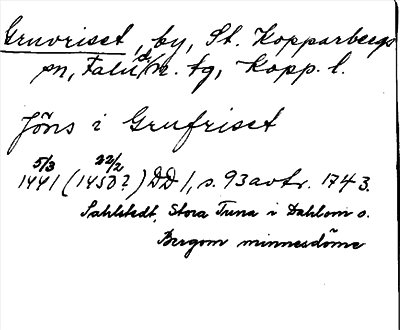 Gruvriset, by, St. Kopparbergs
sn, Falu d/n. tg, Kopp. l.
Jöns i Grufriset
5/3 22/2
1441 (1450?) DD 1, s. 93 avtr. 1743.
Sahlstedt, Stora Tuna i Dahlom o.
Bergom minnesdöme